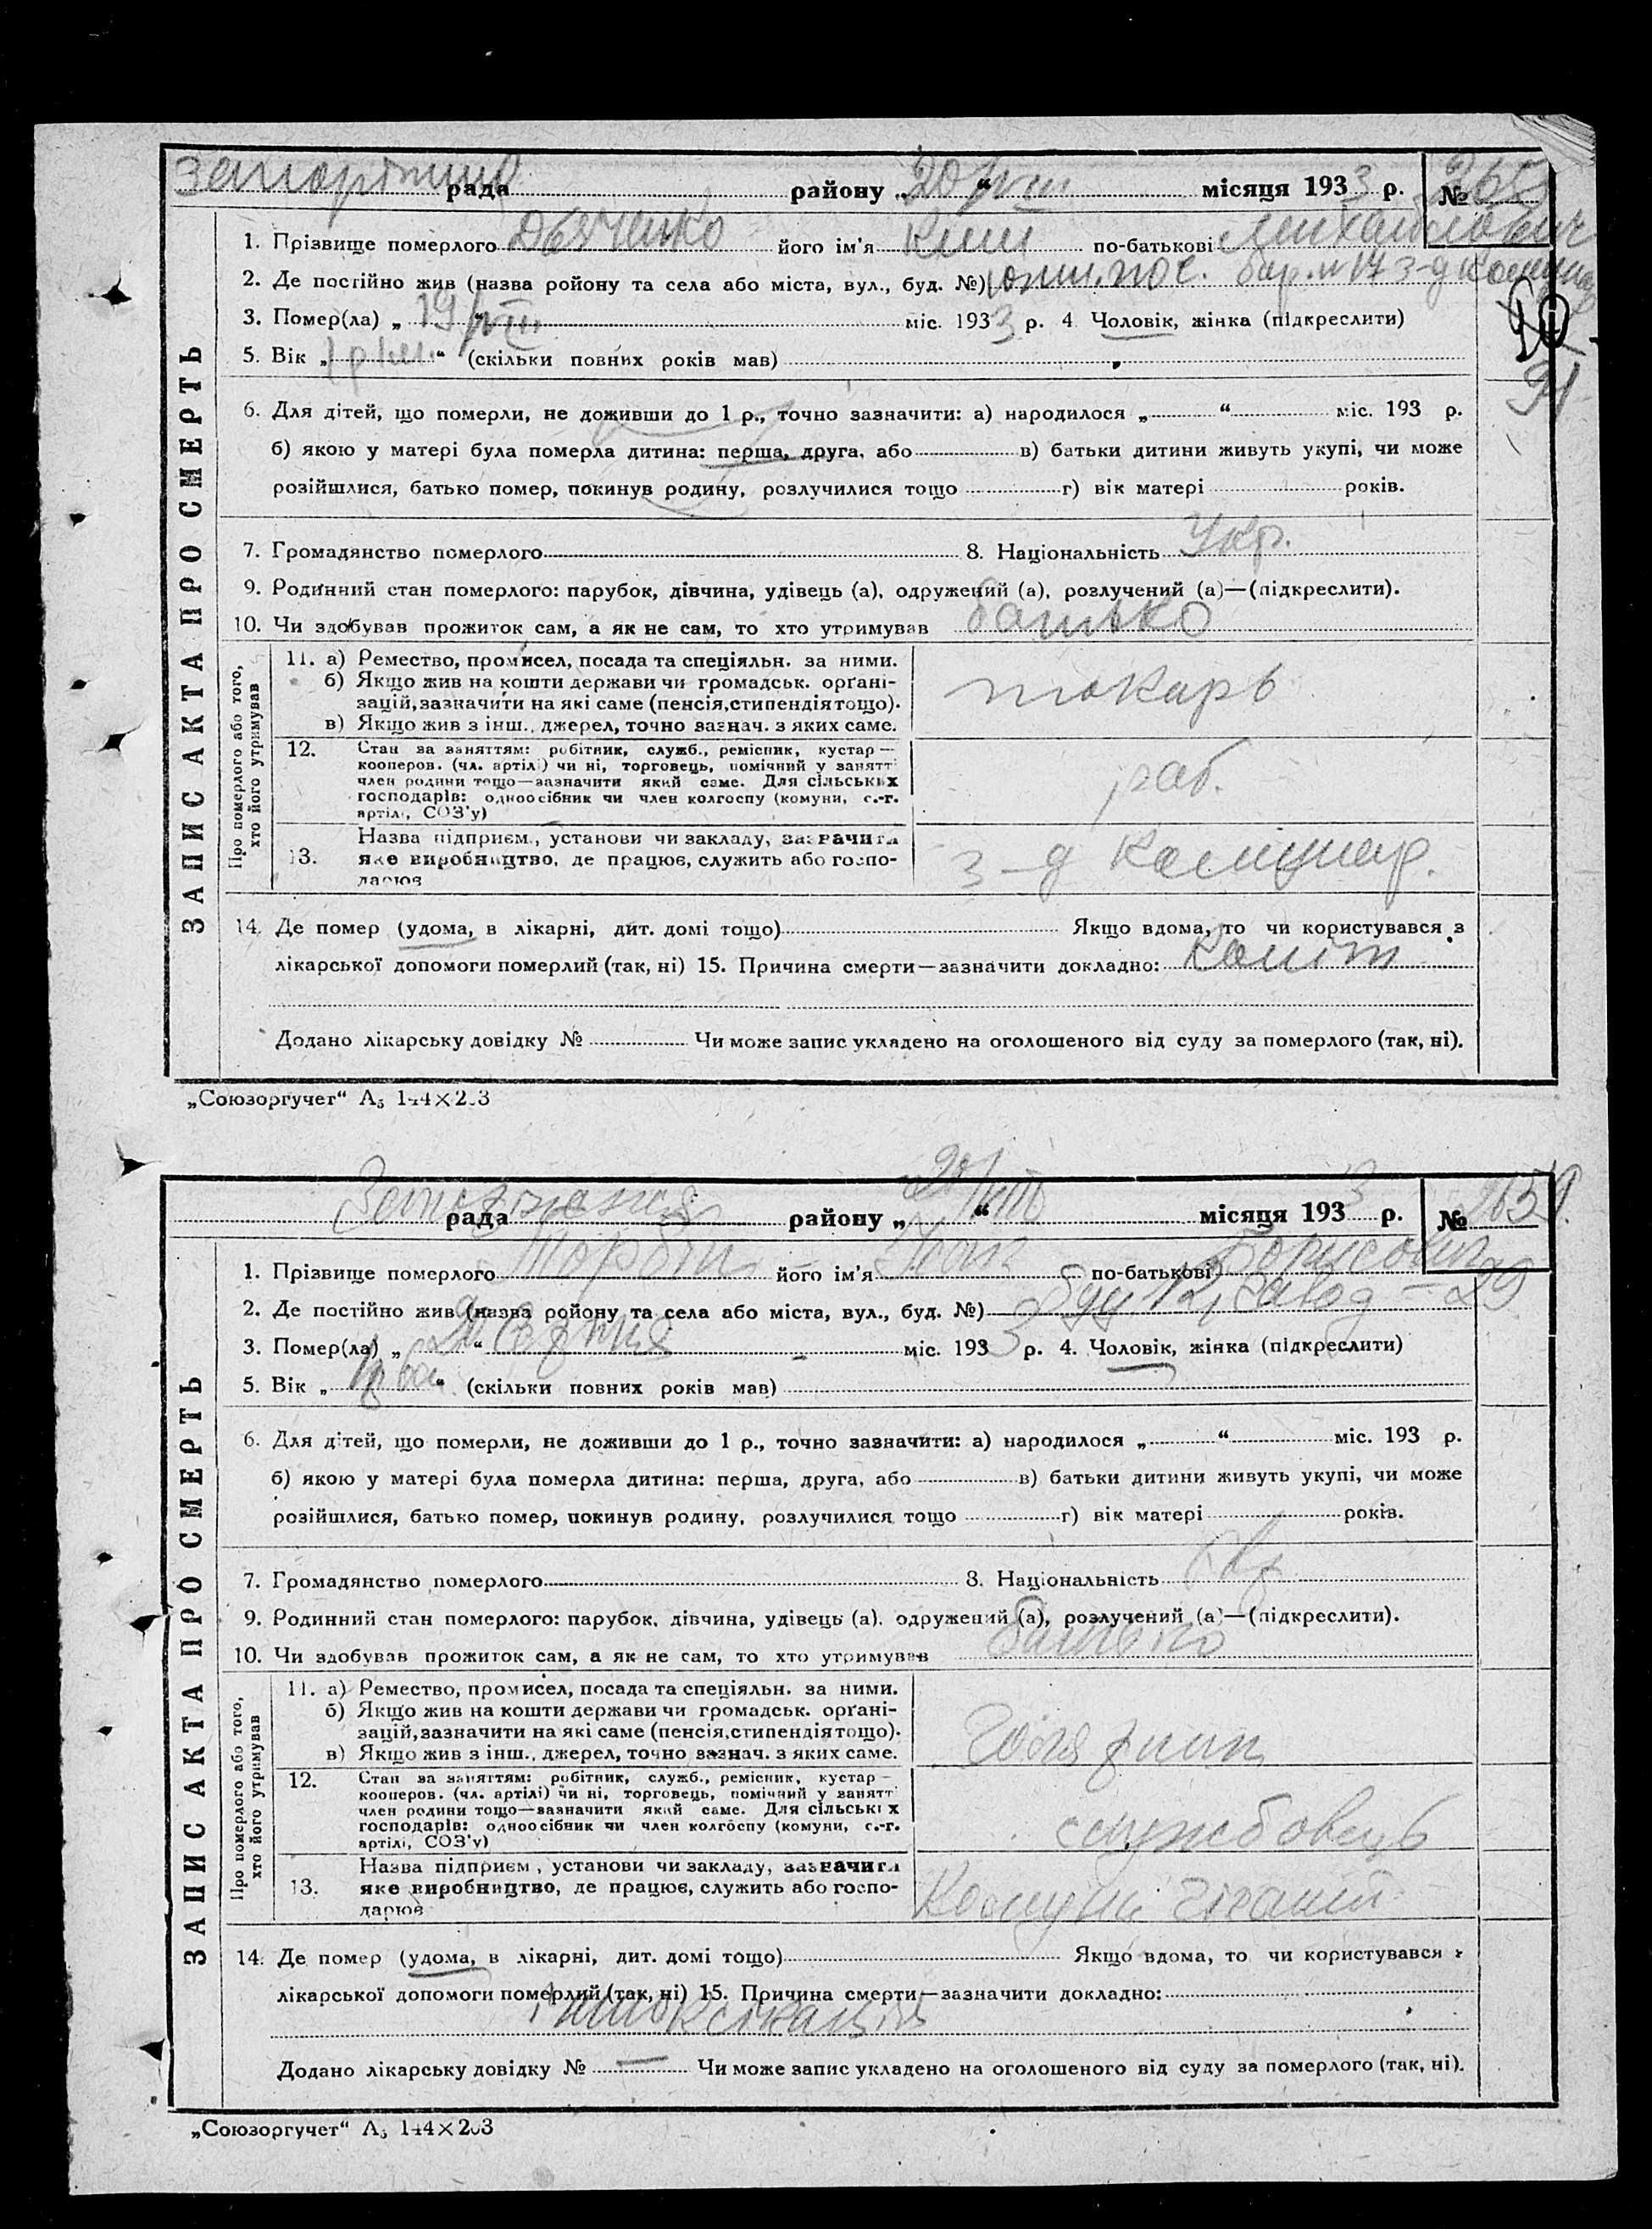 рада района „20/VIII“ місяця 1933 р. №
1. Прізвище померлого Дьяченко його ім'я Ким по-батькові Михайлович
2. Де постійно жив (назва ройону та села або міста, вул., буд. №) пос. бар. № 17 з-д Комунар
3. Помер(ла) „19/VIII“ міс. 1933 р. 4. Чоловік, жінка (підкреслити)
5. Вік „1 р.“ (скільки повних років мав)
6. Для дітей, що померли, не доживши до 1 р., точно зазначити: а) народилося „ “ міс. 193 р.
б) якою у матері була померла дитина: перша, друга, або в) батьки дитини живуть укупі, чи може
розійшлися, батько помер, покинув родину, розлучилися тощо г) вік матері років.
7. Громадянство померлого 8. Національність Укр.
9. Родинний стан померлого: парубок, дівчина, удівець (а), одружений (а), розлучений (а)—(підкреслити).
10. Чи здобував прожиток сам, а як не сам, то хто утримував батько
ЗАПИС АКТА ПРО СМЕРТЬ
Про померлого або того,
хто його утримував
11. а) Ремество, промисел, посада та спеціяльн. за ними.
б) Якщо жив на кошти держави чи громадськ. орґані-
зацій, зазначити на які саме (пенсія, стипендія тощо).
в) Якщо жив з інш., джерел, точно зазнач. з яких саме.
токарь
12. Стан за заняттям: робітник, служб., ремісник, кустар—
кооперов. (чл. артілі) чи ні, торговець, помічний у занятті
член родини тощо—зазначити який саме. Для сільських
господарів: одноосібник чи член колгоспу (комуни, с.-г.
артілі, СОЗ'у)
раб.
13. Назва підприєм., установи чи закладу, зазначити
яке виробництво, де працює, служить або госпо-
дарює
з-д Комунар.
14. Де помер (удома, в лікарні, дит. домі тощо) Якщо вдома, то чи користувався з
лікарської допомоги померлий (так, ні) 15. Причина смерти—зазначити докладно: Коліт
Додано лікарську довідку № Чи може запис укладено на оголошеного від суду за померлого (так, ні).
„Союзоргучет“ А₅ 144×203
рада району „20/VIII“ місяця 1933 р. №
1. Прізвище померлого його ім'я по-батькові Борисович
2. Де постійно жив (назва ройону та села або міста, вул., буд. №) 29
3. Помер(ла) „ “ серпня міс. 1933 р. 4. Чоловік, жінка (підкреслити)
5. Вік „ “ (скільки повних років мав)
6. Для дітей, що померли, не доживши до 1 р., точно зазначити: а) народилося „ “ міс. 193 р.
б) якою у матері була померла дитина: перша, друга, або в) батьки дитини живуть укупі, чи може
розійшлися, батько помер, покинув родину, розлучилися тощо г) вік матері років.
7. Громадянство померлого 8. Національність
9. Родинний стан померлого: парубок, дівчина, удівець (а), одружений (а), розлучений (а)—(підкреслити).
10. Чи здобував прожиток сам, а як не сам, то хто утримував батько
ЗАПИС АКТА ПРО СМЕРТЬ
Про померлого або того,
хто його утримував
11. а) Ремество, промисел, посада та спеціяльн. за ними.
б) Якщо жив на кошти держави чи громадськ. орґані-
зацій, зазначити на які саме (пенсія, стипендія тощо).
в) Якщо жив з інш., джерел, точно зазнач. з яких саме.
12. Стан за заняттям: робітник, служб., ремісник, кустар—
кооперов. (чл. артілі) чи ні, торговець, помічний у занятті
член родини тощо—зазначити який саме. Для сільських
господарів: одноосібник чи член колгоспу (комуни, с.-г.
артілі, СОЗ'у)
службовець
13. Назва підприєм., установи чи закладу, зазначити
яке виробництво, де працює, служить або госпо-
дарює
14. Де помер (удома, в лікарні, дит. домі тощо) Якщо вдома, то чи користувався з
лікарської допомоги померлий (так, ні) 15. Причина смерти—зазначити докладно:
Інтоксікація
Додано лікарську довідку № — Чи може запис укладено на оголошеного від суду за померлого (так, ні).
„Союзоргучет“ А₅ 144×203